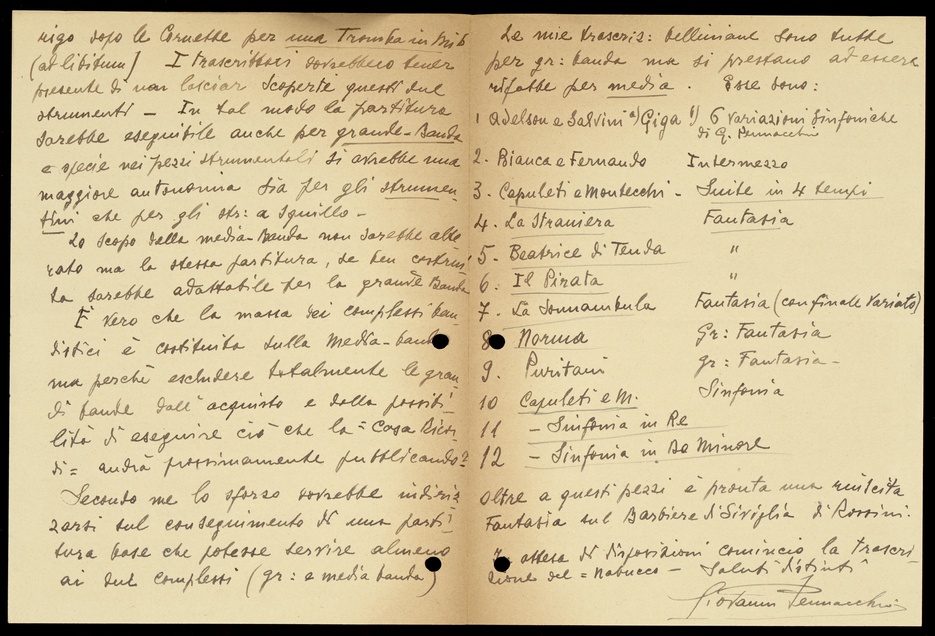 rigo dopo le Cornette per una Tromba in Mib
(ad libitum) I Trascrittori dovrebbero tener
presente di non lasciar scoperte questi due
strumenti – In tal modo la partitura
sarebbe eseguibile anche per grande-Banda
e specie nei pezzi strumentali si avrebbe una
maggiore autonomia sia per gli strumen-
tini che per gli str: a squillo –
Lo scopo della media-Banda non sarebbe alte-
rato ma la stessa partitura, se ben costrui-
ta sarebbe adattabile per la grande Banda
È vero che la massa dei complessi ban-
distici è costituita dalla media-banda
ma perchè escludere totalmente le gran-
di bande dall'acquisto e dalla possibi-
lità di eseguire ciò che la = Casa Ricor-
di = andrà prossimamente pubblicando?
Secondo me lo sforzo dovrebbe indiriz-
zarsi sul conseguimento di una parti-
tura base che potesse servire almeno
ai due complessi (gr: e media banda)
Le mie trascriz: belliniane sono tutte
per gr: banda ma si prestano ad essere
rifatte per media. Esse sono:
1 Adelson e Salvini a) Giga b) 6 Variazioni Sinfoniche
di G. Pennacchio
2. Bianca e Fernando Intermezzo
3. Capuleti e Montecchi – Suite in 4 tempi
4. La Straniera Fantasia
5. Beatrice di Tenda "
6. Il Pirata "
7. La Sonnambula Fantasia (con finale variato)
8. Norma Gr: Fantasia
9. Puritani gr: Fantasia –
10 Capuleti e M. Sinfonia
11 – Sinfonia in Re
12 – Sinfonia in Do Minore
Oltre a questi pezzi è pronta una riuscita
Fantasia sul Barbiere di Siviglia di Rossini.
attesa di disposizioni comincio la trascri-
zione del = Nabucco – Saluti distinti
Giovanni Pennacchio